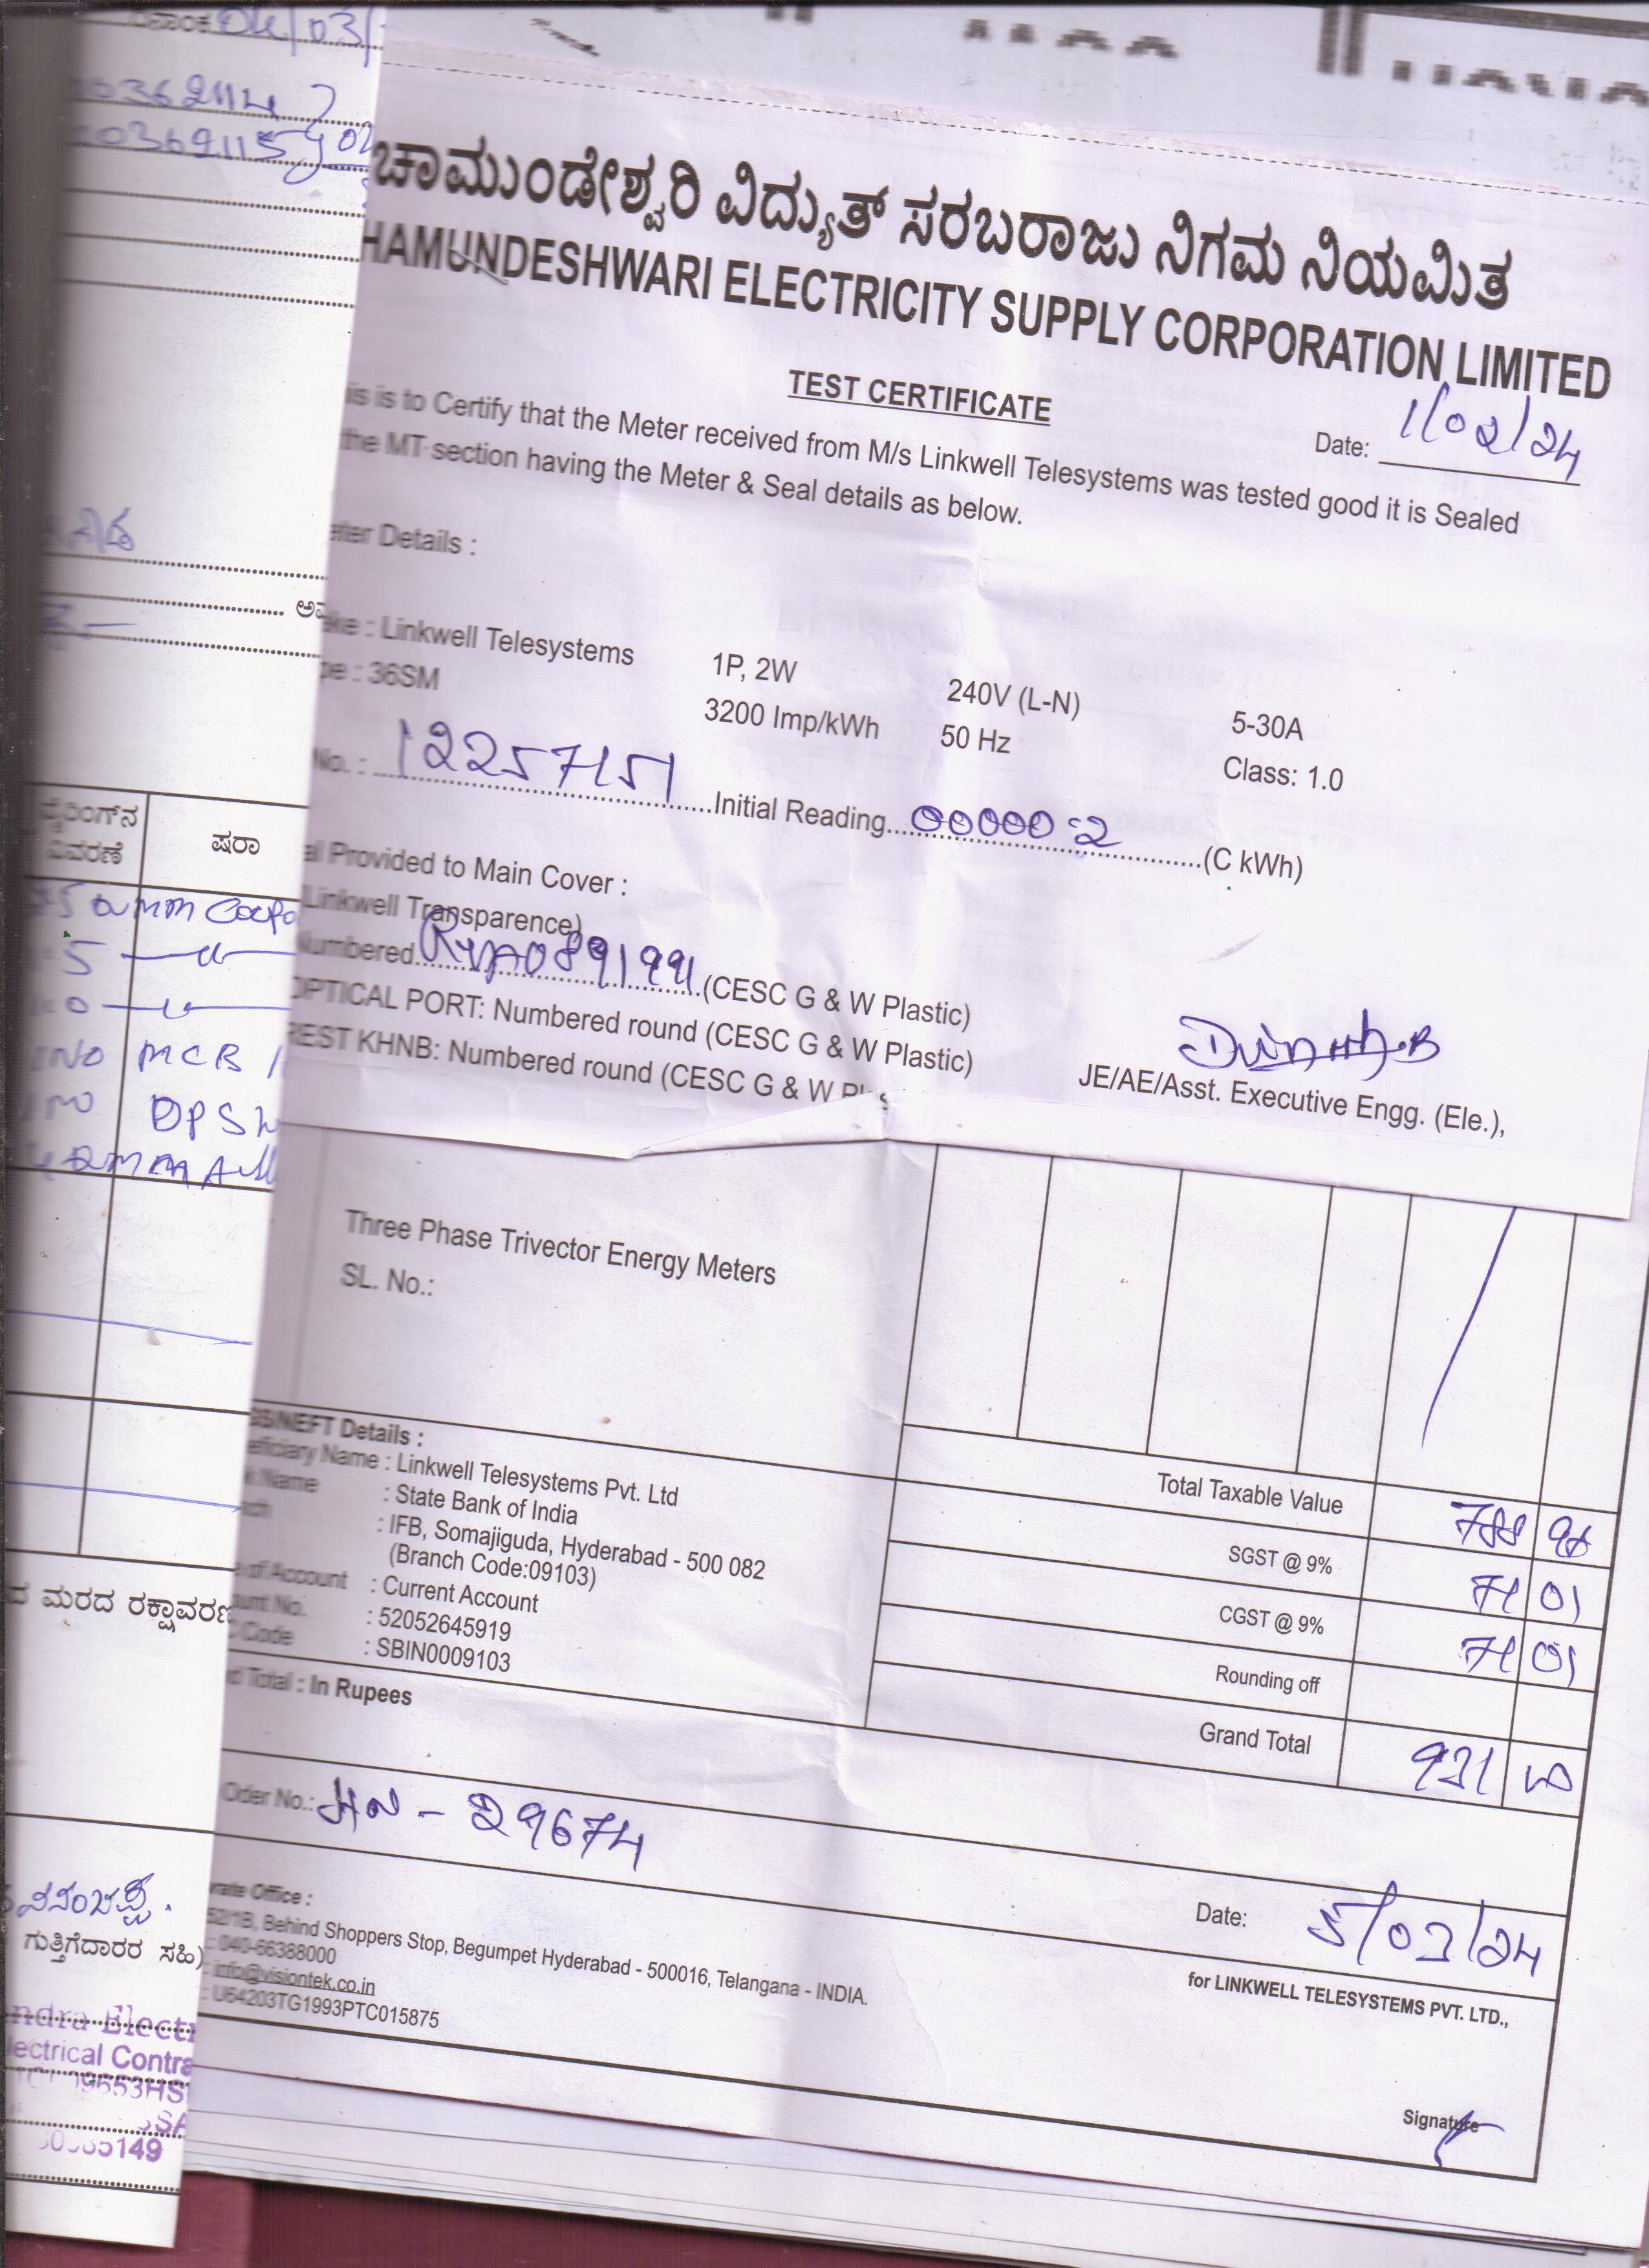 04/03/
10362114
10362115
ಚಾಮುಂಡೇಶ್ವರಿ ವಿದ್ಯುತ್ ಸರಬರಾಜು ನಿಗಮ ನಿಯಮಿತ
HAMUNDESHWARI ELECTRICITY SUPPLY CORPORATION LIMITED
TEST CERTIFICATE
Date: 1/02/24
is is to Certify that the Meter received from M/s Linkwell Telesystems was tested good it is Sealed
the MT section having the Meter & Seal details as below.
eter Details :
ake : Linkwell Telesystems 1P, 2W 240V (L-N) 5-30A
pe : 36SM 3200 Imp/kWh 50 Hz Class: 1.0
No. : 12257151 Initial Reading 00000:2 (C kWh)
al Provided to Main Cover :
Linkwell Transparence)
Numbered (CESC G & W Plastic)
OPTICAL PORT: Numbered round (CESC G & W Plastic)
REST KHNB: Numbered round (CESC G & W
JE/AE/Asst. Executive Engg. (Ele.),
ವೈರಿಂಗ್‌ನ ವಿವರಣೆ
ಷರಾ
MCB
DPS
Three Phase Trivector Energy Meters
SL. No.:
GS/NEFT Details :
eficiary Name : Linkwell Telesystems Pvt. Ltd
k Name : State Bank of India
nch : IFB, Somajiguda, Hyderabad - 500 082
(Branch Code:09103)
e of Account : Current Account
ount No. : 52052645919
Code : SBIN0009103
d Total : In Rupees
Total Taxable Value 788 98
SGST @ 9% 71 01
CGST @ 9% 71 01
Rounding off
Grand Total 931 00
Oder No.: HN - 29674
ದ ಮರದ ರಕ್ಷಾವರಣ
Date: 5/03/24
rate Office :
52/1B, Behind Shoppers Stop, Begumpet Hyderabad - 500016, Telangana - INDIA.
: 040-66388000
: info@visiontek.co.in
: U64203TG1993PTC015875
for LINKWELL TELESYSTEMS PVT. LTD.,
Signature
ಗುತ್ತಿಗೆದಾರರ ಸಹಿ)
ndra Electr
lectrical Contra
09653HS
149